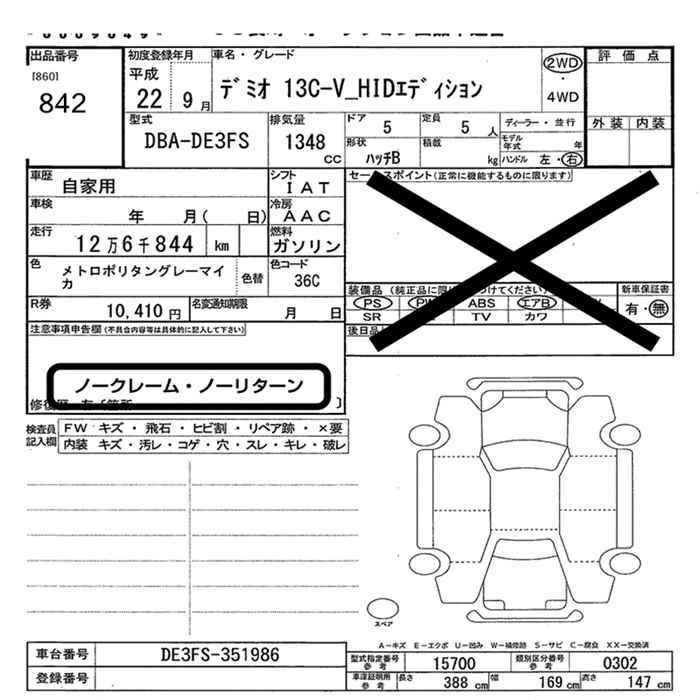 出品番号
[860]
842
初度登録年月
平成
22 9 月
車名・グレード
デミオ 13C-V_HIDエディション
2WD
・
4WD
評価点
外装 内装
型式
DBA-DE3FS
排気量
1348
CC
ドア
5
定員
5 人
ディーラー・並行
モデル年式 年
形状
ハッチB
積載
kg
ハンドル 左・右
車歴
自家用
シフト
IAT
車検
年 月( 日)
冷房
AAC
走行
12万6千844 km
燃料
ガソリン
色
メトロポリタングレーマイカ
色替
色コード
36C
R券
10,410 円
名変通知期限
月 日
セールスポイント(正常に機能するものに限ります)
装備品
PS
ABS
エアB
SR
TV
カワ
新車保証書
有・無
注意事項申告欄(不具合内容等は具体的に記入して下さい)
ノークレーム・ノーリターン
検査員記入欄
FW キズ・飛石・ヒビ割・リペア跡・×要
内装 キズ・汚レ・コゲ・穴・スレ・キレ・破レ
スペア
A−キズ E−エクボ U−凹み W−補修跡 S−サビ C−腐食 XX−交換済
車台番号
DE3FS-351986
登録番号
型式指定番号参考
15700
類別区分番号参考
0302
車庫証明用参考
長さ 388 cm
幅 169 cm
高さ 147 cm